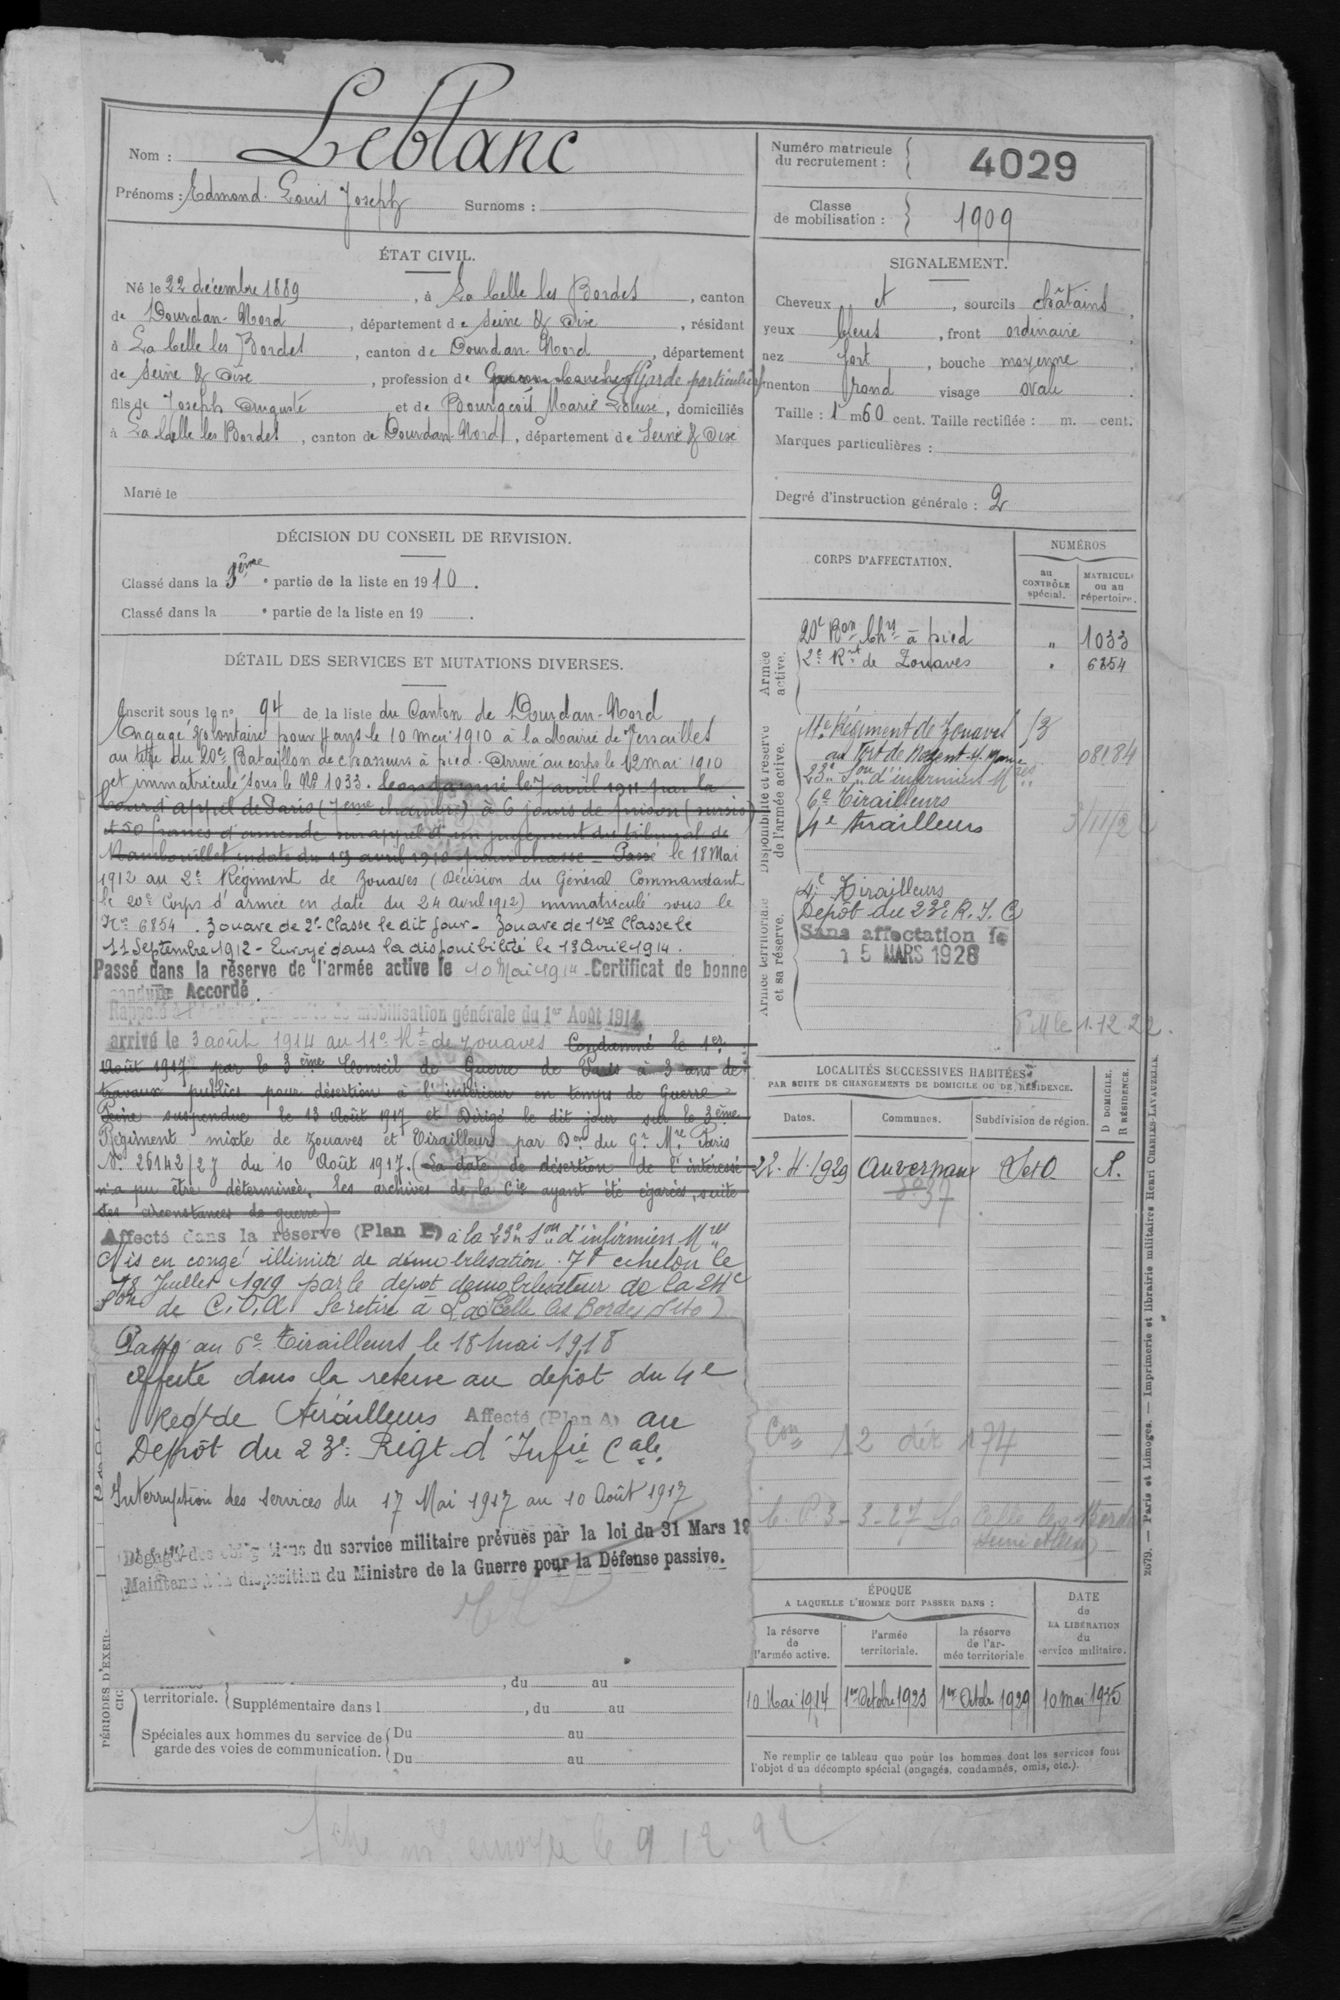 Nom : Leblanc
Prénoms : Edmond Louis Joseph Surnoms :
Numéro matricule du recrutement : 4029
Classe de mobilisation : 1909
ÉTAT CIVIL.
Né le 22 décembre 1889, à La Celle les Bordes, canton
de Dourdan-Nord, département de Seine & Oise, résidant
à La Celle les Bordes, canton de Dourdan-Nord, département
de Seine & Oise, profession de Garde particulier
fils de Joseph Auguste et de Bourgeois Marie Louise, domiciliés
à La Celle les Bordes, canton de Dourdan-Nord, département de Seine & Oise
Marié le
SIGNALEMENT.
Cheveux et, sourcils châtains,
yeux bleus, front ordinaire,
nez fort, bouche moyenne,
menton rond visage ovale.
Taille : 1 m 60 cent. Taille rectifiée : m. cent.
Marques particulières :
Degré d'instruction générale : 2
DÉCISION DU CONSEIL DE REVISION.
Classé dans la 3ème partie de la liste en 1910.
Classé dans la e partie de la liste en 19 .
DÉTAIL DES SERVICES ET MUTATIONS DIVERSES.
Inscrit sous le n° 94 de la liste du Canton de Dourdan-Nord
Engagé volontaire pour 4 ans le 10 mai 1910 à la Mairie de Versailles
au titre du 20e Bataillon de chasseurs à pied. Arrivé au corps le 12 mai 1910
et immatriculé sous le No 1033. Condamné le 7 avril 1911 par la
Cour d'appel de Paris (7ème chambre) à 6 jours de prison (sursis)
et 50 francs d'amende sur appel d'un jugement du tribunal de
Rambouillet en date du 19 avril 1910 pour chasse - Passé le 18 Mai
1912 au 2e Régiment de Zouaves (Décision du Général Commandant
le 20e Corps d'armée en date du 24 avril 1912) immatriculé sous le
No 6854. Zouave de 2e Classe le dit jour - Zouave de 1ère Classe le
11 Septembre 1912 - Envoyé dans la disponibilité le 13 Avril 1914.
Passé dans la réserve de l'armée active le 10 Mai 1914 - Certificat de bonne
conduite Accordé.
Rappelé à l'activité par suite de mobilisation générale du 1er Août 1914
arrivé le 3 août 1914 au 11e Rt de Zouaves Condamné le 1er
Août 1917 par le 3ème Conseil de Guerre de Paris à 3 ans de
travaux publics pour désertion à l'intérieur en temps de Guerre
Peine suspendue le 13 Août 1917 et Dirigé le dit jour sur le 3ème
Régiment mixte de Zouaves et Tirailleurs par Don du Gr Mre Paris
No 26142/27 du 10 Août 1917. (La date de désertion de l'intéressé
n'a pu être déterminée, les archives de la Cie ayant été égarées, suite
des circonstances de guerre)
Affecté dans la réserve (Plan E) à la 23e Son d'infirmiers Mres
Mis en congé illimité de démobilisation 7e échelon le
18 Juillet 1919 par le dépôt démobilisateur de la 24e
Son de C.O.A. Se retire à La Celle les Bordes (S et O)
Passé au 6e Tirailleurs le 18 Mai 1918
Affecté dans la réserve au dépôt du 4e
Regt de Tirailleurs Affecté (Plan A) au
Dépôt du 23e Régt d'Infie Cale.
Interruption des services du 17 Mai 1917 au 10 Août 1917
Dégagé des obligations du service militaire prévues par la loi du 31 Mars 19
Maintenu à la disposition du Ministre de la Guerre pour la Défense passive.
PÉRIODES D'EXERCIC
, du au
territoriale. Supplémentaire dans l , du au
Spéciales aux hommes du service de garde des voies de communication. Du au
Du au
CORPS D'AFFECTATION.
NUMÉROS
au CONTRÔLE spécial.
MATRICULE ou au répertoire.
Armée active.
20e Bon Chrs à pied " 1033
2e Rnt de Zouaves " 6854
Disponibilité et réserve de l'armée active.
11e Régiment de Zouaves
au Fort de Nogent s. Marne 08184
23e Son d'infirmiers Mres
6e Tirailleurs
4e Tirailleurs
Armée territoriale et sa réserve.
4e Tirailleurs
Dépôt du 23e R. I. C.
Sans affectation le
15 MARS 1928
1.12.22.
LOCALITÉS SUCCESSIVES HABITÉES
PAR SUITE DE CHANGEMENTS DE DOMICILE OU DE RÉSIDENCE.
Dates. Communes. Subdivision de région. D DOMICILE. R RÉSIDENCE.
22.4.1929 Auvernaux S et O
3-3-27 La Celle les Bordes
ÉPOQUE
A LAQUELLE L'HOMME DOIT PASSER DANS :
la réserve de l'armée active.
l'armée territoriale.
la réserve de l'armée territoriale
DATE de LA LIBÉRATION du service militaire.
10 Mai 1914 1er Octobre 1923 1er Octobre 1929 10 mai 1935
Ne remplir ce tableau que pour les hommes dont les services font
l'objet d'un décompte spécial (engagés, condamnés, omis, etc.).
2679. — Paris et Limoges. — Imprimerie et librairie militaires Henri CHARLES-LAVAUZELLE.
envoyée le 9.12.22.